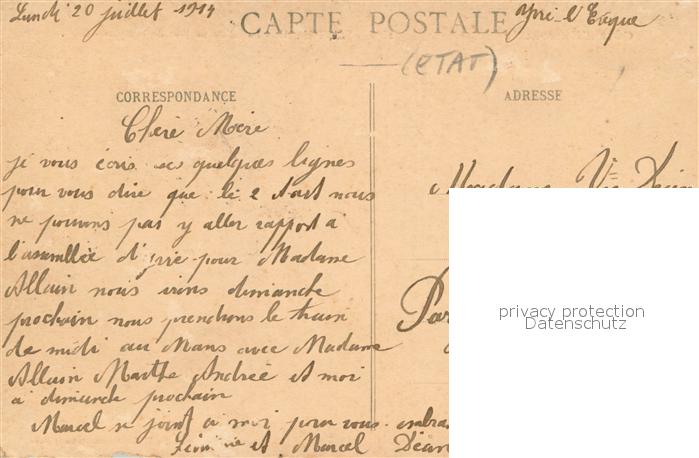 Lundi 20 juillet 1914
CARTE POSTALE
Yvré-l'Evêque
(ETAT)
CORRESPONDANCE
ADRESSE
Chère Mère
je vous écris ses quelques lignes
pour vous dire que le 2 Aout nous
ne pouvons pas y aller rapport a
l'assemblée d'yvré pour Madame
Allain nous irons dimanche
prochain nous prendrons le train
de midi au Mans avec Madame
Allain Marthe Andrée et moi
a dimanche prochain
Marcel se joint a moi pour vous embra
et Marcel
Madame Vve
Par
privacy protection
Datenschutz